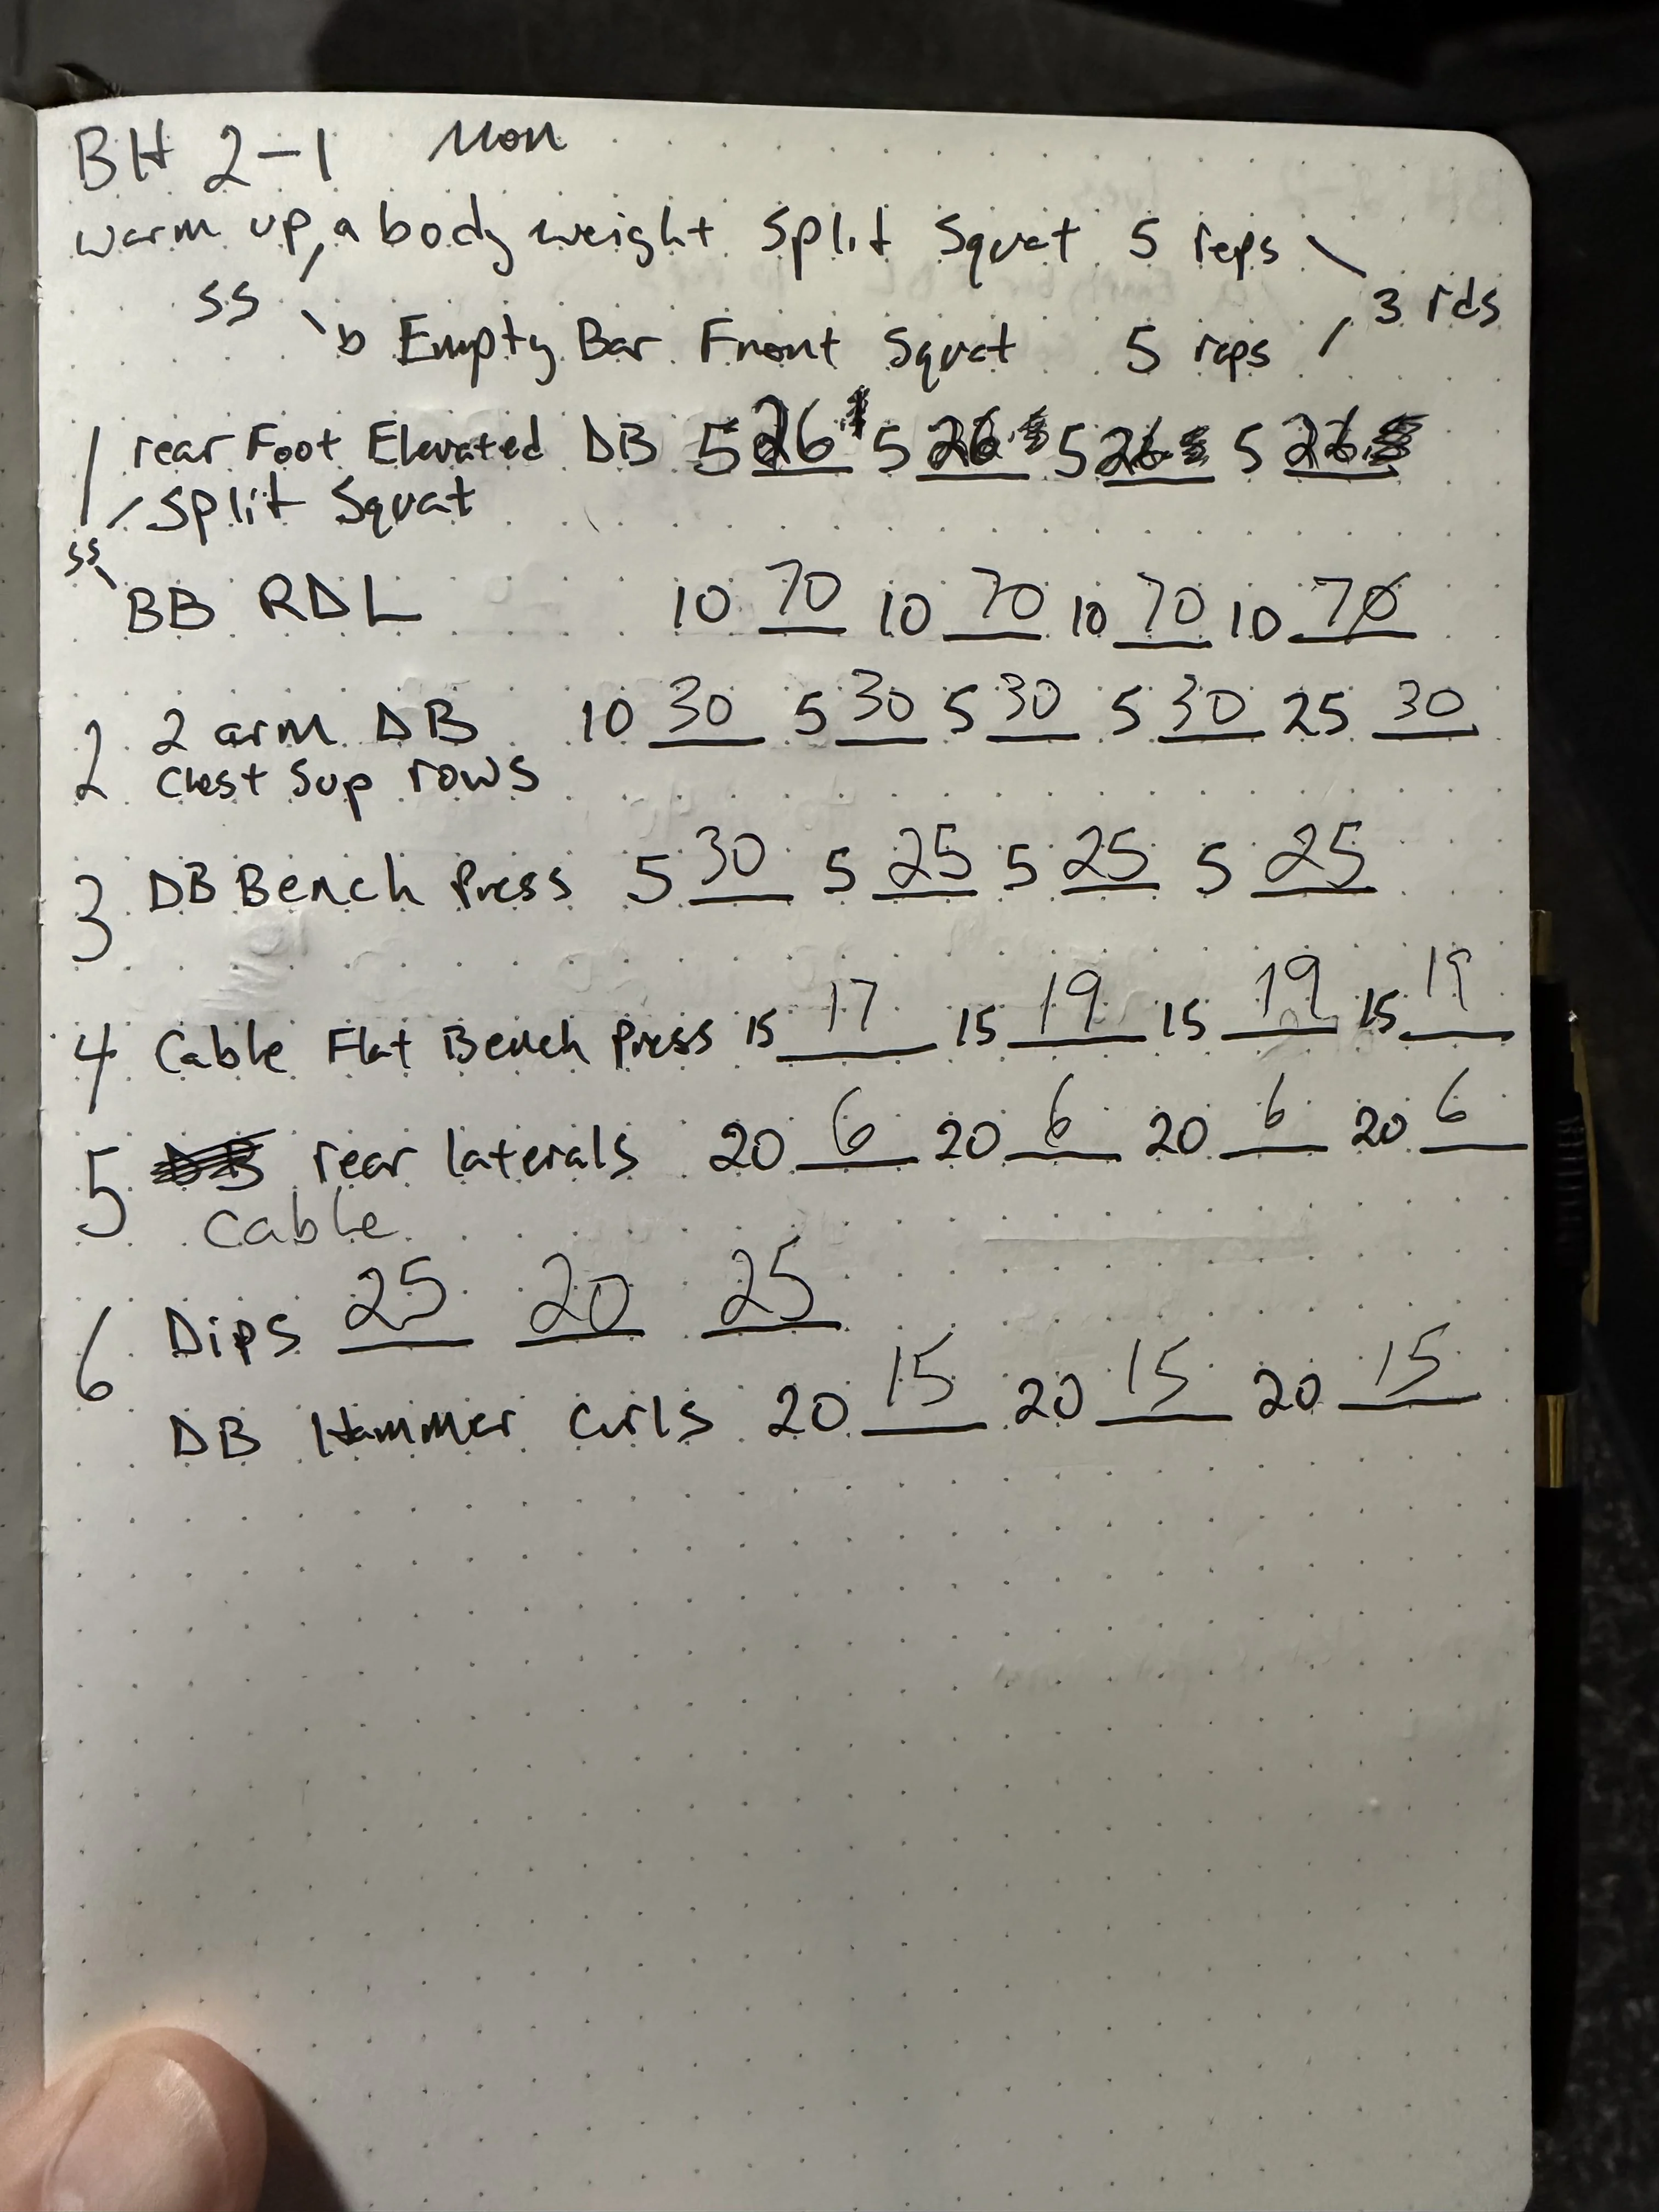 BH 2-1 Mon
warm up, a body weight Split Squat 5 reps
SS 3 rds
b Empty Bar Front Squat 5 reps
1 rear Foot Elevated DB 5 26 5 26 5 26 5 26
Split Squat
SS
BB RDL 10 70 10 70 10 70 10 70
2 2 arm DB 10 30 5 30 5 30 5 30 25 30
Chest Sup rows
3 DB Bench Press 5 30 5 25 5 25 5 25
4 Cable Flat Bench Press 15 17 15 19 15 19 15 19
5 rear laterals 20 6 20 6 20 6 20 6
Cable
6 Dips 25 20 25
DB Hammer Curls 20 15 20 15 20 15